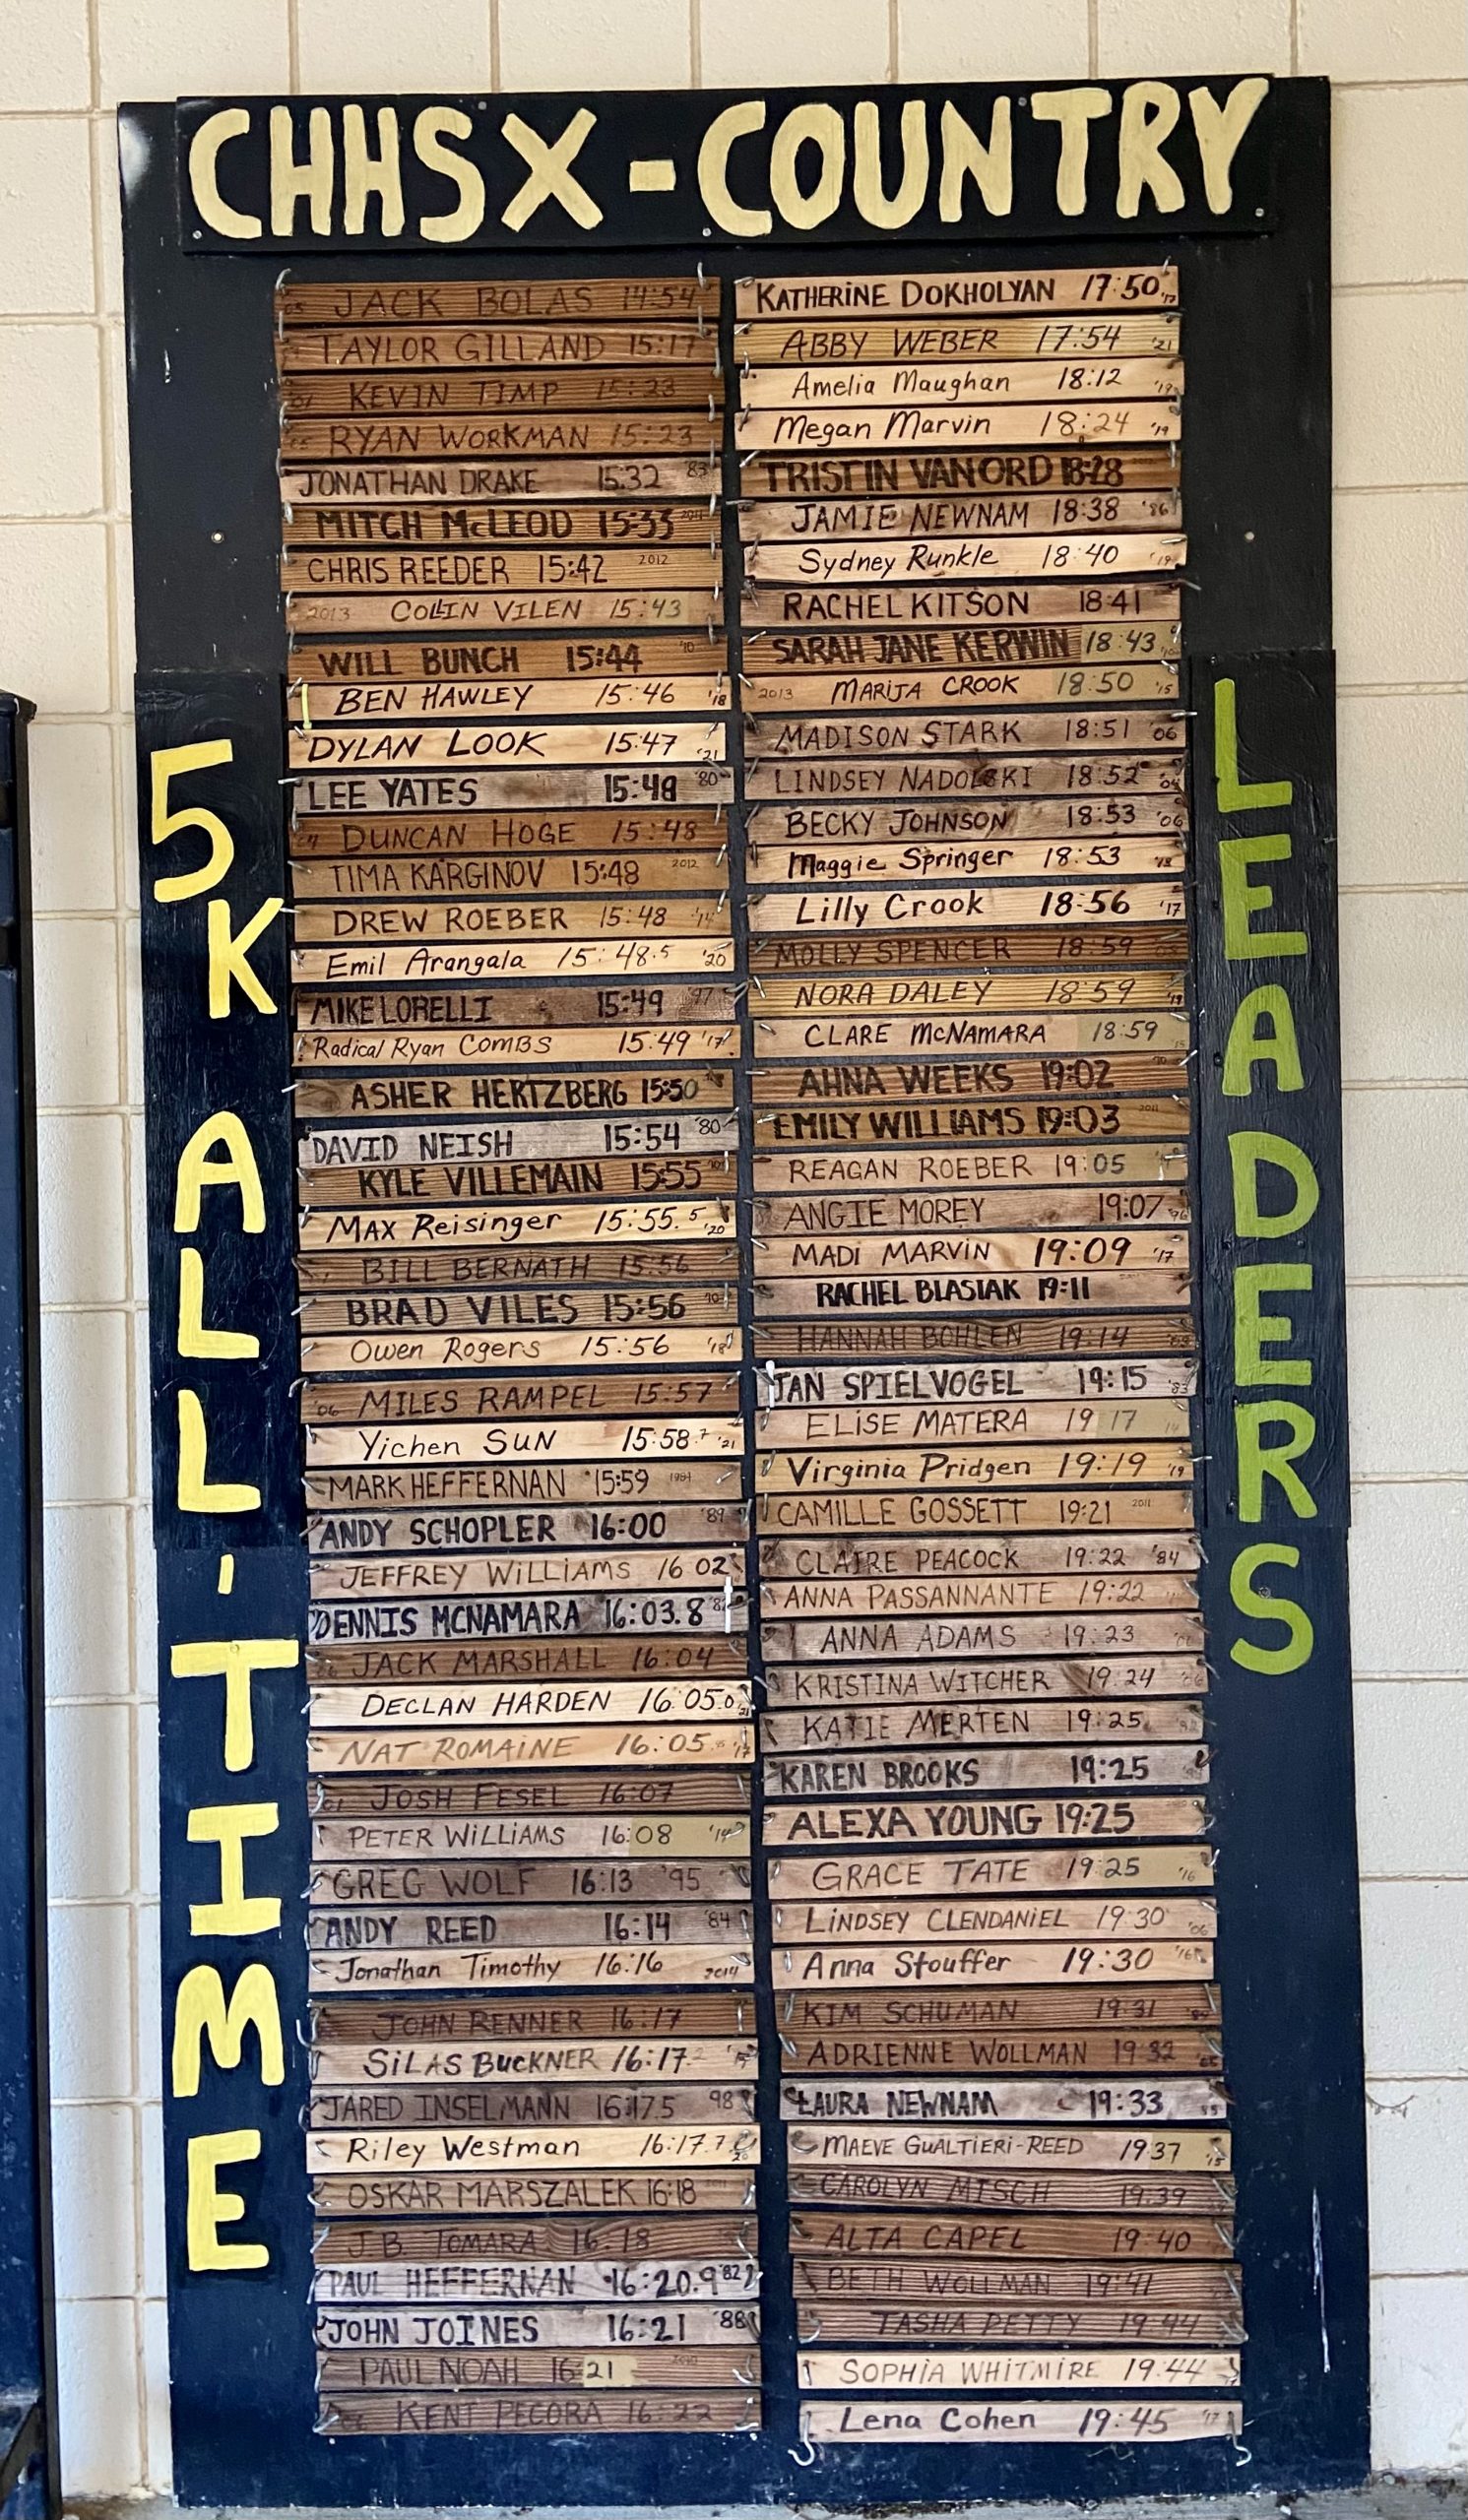 CHHS X-COUNTRY
5K ALL-TIME
LEADERS
JACK BOLAS 14:54
TAYLOR GILLAND 15:17
KEVIN TIMP 15:23
RYAN WORKMAN 15:23
JONATHAN DRAKE 15:32 '83
MITCH McLEOD 15:33 2011
CHRIS REEDER 15:42 2012
2013 COLLIN VILEN 15:43
WILL BUNCH 15:44 '10
BEN HAWLEY 15:46 '18
DYLAN LOOK 15:47 '21
LEE YATES 15:48 '80
DUNCAN HOGE 15:48
TIMA KARGINOV 15:48 2012
DREW ROEBER 15:48 '14
Emil Arangala 15:48.5 '20
MIKE LORELLI 15:49 '97
Radical Ryan COMBS 15:49 '17
ASHER HERTZBERG 15:50
DAVID NEISH 15:54 '80
KYLE VILLEMAIN 15:55
MAX Reisinger 15:55.5 '20
BILL BERNATH 15:56
BRAD VILES 15:56 '10
Owen Rogers 15:56 '18
'06 MILES RAMPEL 15:57
Yichen SUN 15:58.7 '21
MARK HEFFERNAN 15:59 1984
ANDY SCHOPLER 16:00 '89
JEFFREY WILLIAMS 16 02
DENNIS MCNAMARA 16:03.8 '82
JACK MARSHALL 16:04
DECLAN HARDEN 16:05.0 '21
NAT ROMAINE 16:05 '17
JOSH FESEL 16:07
PETER WILLIAMS 16:08 '14
GREG WOLF 16:13 '95
ANDY REED 16:14 '84
Jonathan Timothy 16:16 2014
JOHN RENNER 16:17
SILAS BUCKNER 16:17.2
JARED INSELMANN 16:17.5 98
Riley Westman 16:17.7 20
OSKAR MARSZALEK 16:18
J.B. TOMARA 16:18
PAUL HEFFERNAN 16:20.9 '82
JOHN JOINES 16:21 '88
PAUL NOAH 16:21
KENT PECORA 16:22
KATHERINE DOKHOLYAN 17:50 '17
ABBY WEBER 17:54 '21
Amelia Maughan 18:12 '19
Megan Marvin 18:24 '19
TRISTIN VAN ORD 18:28
JAMIE NEWNAM 18:38 '86
Sydney Runkle 18:40 '19
RACHEL KITSON 18:41
SARAH JANE KERWIN 18:43
2013 MARIJA CROOK 18:50 '15
MADISON STARK 18:51 '06
LINDSEY NADOLSKI 18:52
BECKY JOHNSON 18:53 '06
Maggie Springer 18:53 '18
Lilly Crook 18:56 '17
MOLLY SPENCER 18:59
NORA DALEY 18:59 '19
CLARE McNAMARA 18:59 15
AHNA WEEKS 19:02
EMILY WILLIAMS 19:03 2011
REAGAN ROEBER 19:05
ANGIE MOREY 19:07 96
MADI MARVIN 19:09 '17
RACHEL BLASIAK 19:11
HANNAH BOHLEN 19:14
JAN SPIELVOGEL 19:15 '83
ELISE MATERA 19 17
Virginia Pridgen 19:19 '19
CAMILLE GOSSETT 19:21 2011
CLAIRE PEACOCK 19:22 '84
ANNA PASSANNANTE 19:22
ANNA ADAMS 19:23
KRISTINA WITCHER 19:24
KATIE MERTEN 19:25
KAREN BROOKS 19:25
ALEXA YOUNG 19:25
GRACE TATE 19:25 '16
LINDSEY CLENDANIEL 19:30 '06
Anna Stouffer 19:30 '16
KIM SCHUMAN 19:31
ADRIENNE WOLLMAN 19:32 '05
LAURA NEWNAM 19:33
MAEVE GUALTIERI-REED 19:37 '15
CAROLYN MISCH 19:39
ALTA CAPEL 19:40
BETH WOLLMAN 19:41
TASHA PETTY 19:44
SOPHIA WHITMIRE 19:44
Lena Cohen 19:45 '17